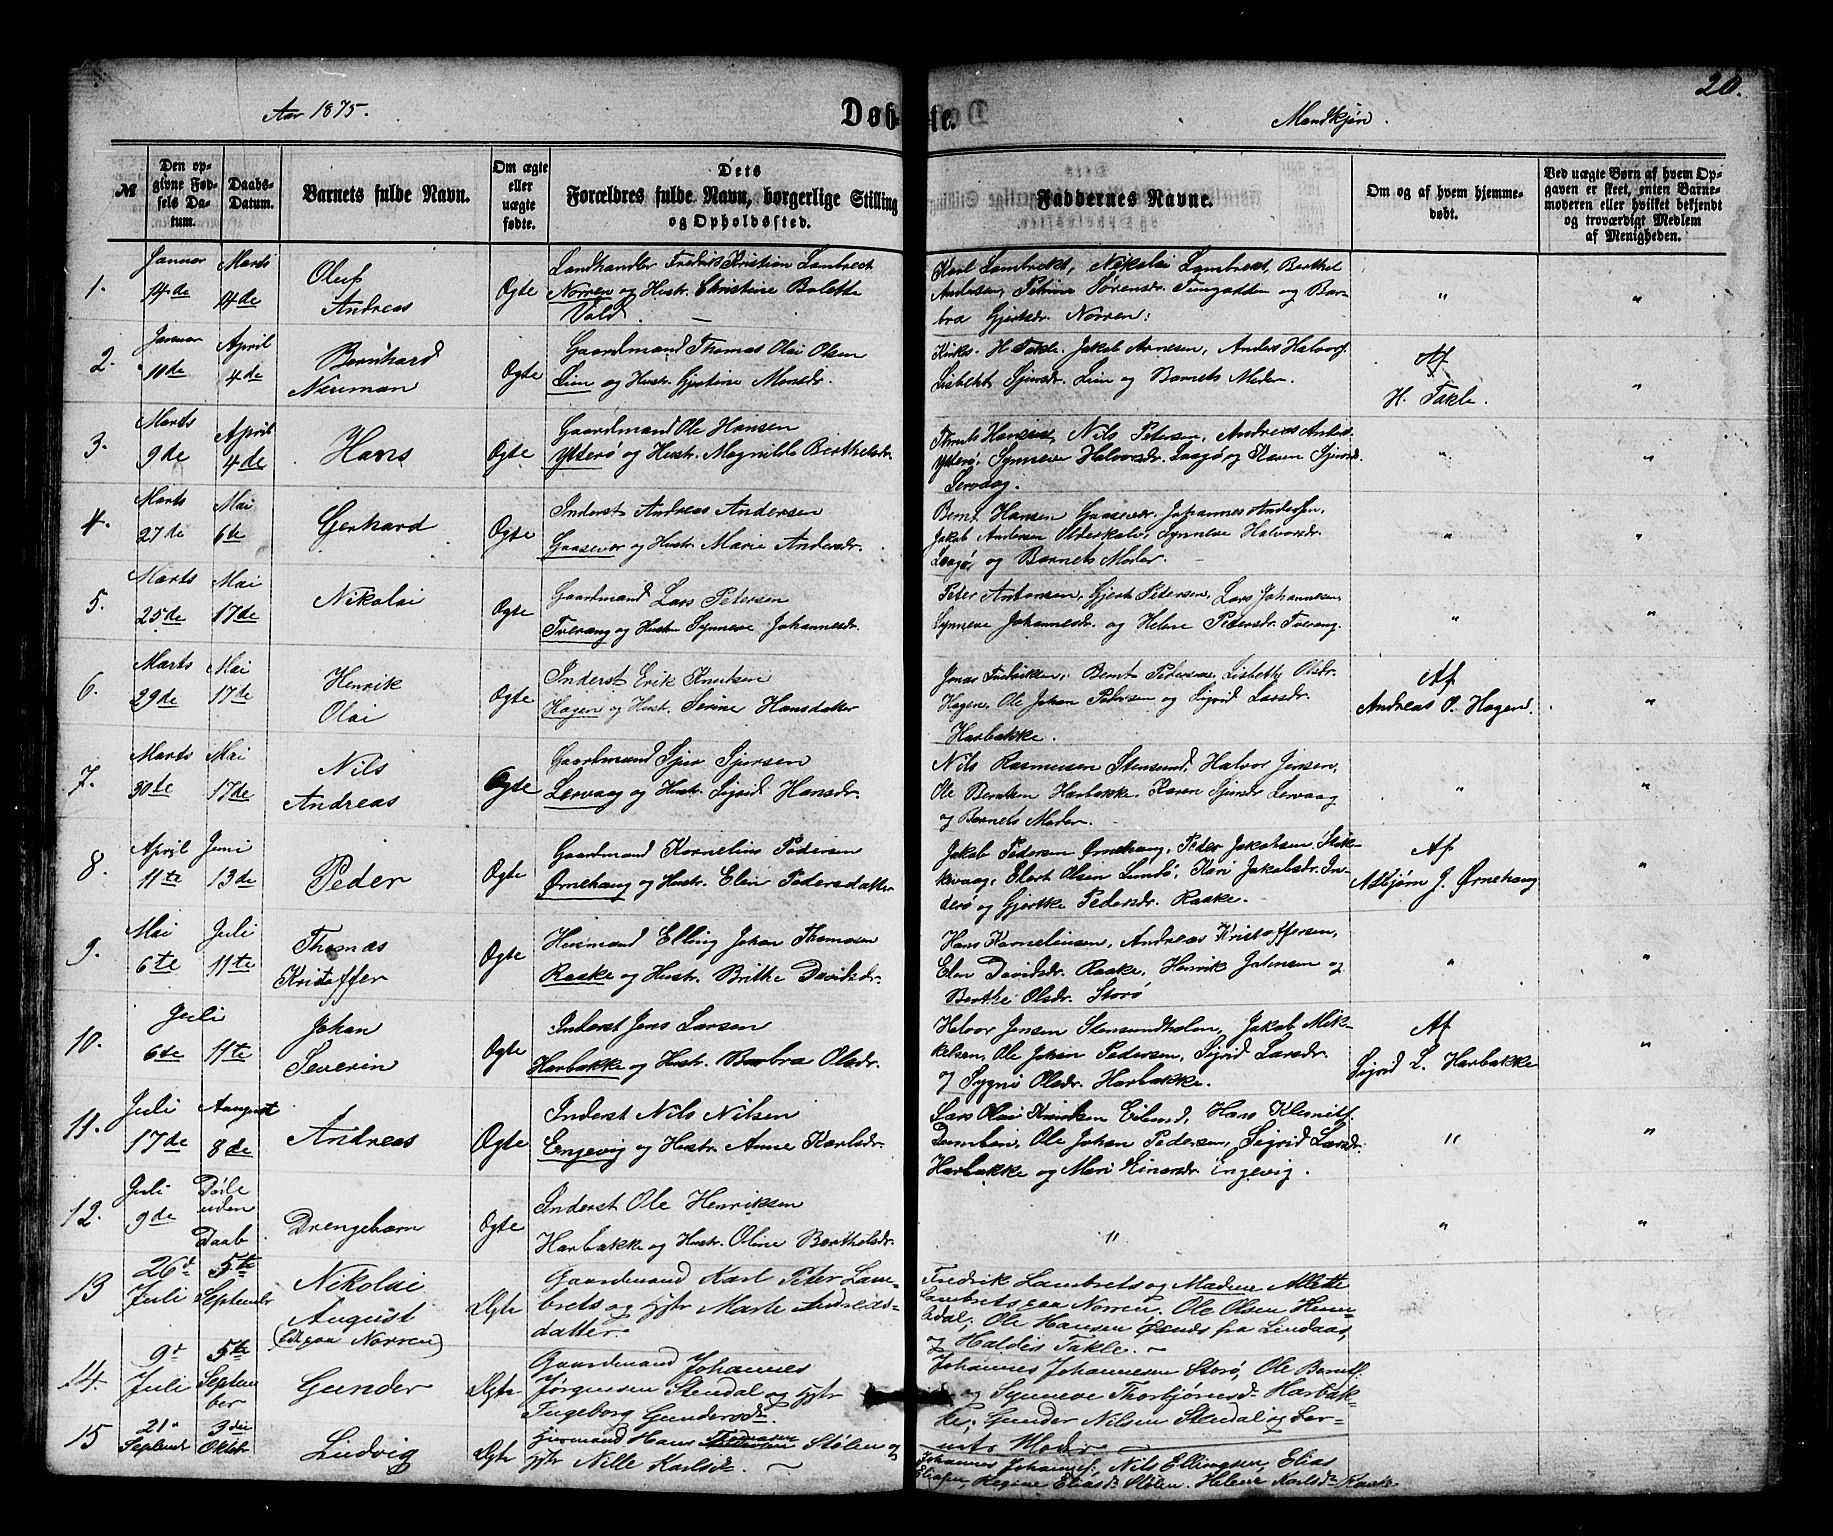 20.
Aar 1875.
Døbte.
Mandkjøn.
№
Den opgivne Fødsels Datum.
Daabs-Datum.
Barnets fulde Navn.
Om ægte eller uægte fødte.
Dets Forældres fulde Navn, borgerlige Stilling og Opholdssted.
Faddernes Navne.
Om og af hvem hjemmedøbt.
Ved uægte Børn af hvem Opgaven er skeet, enten Barnemoderen eller hvilket bekjendt og troværdigt Medlem af Menigheden.
1.
Januar 14de
Marts 14de
Oluf
Andreas
Ægte
Landhandler Fredrik Kristian Lambrect
Norren og Hustr. Christine Bolette
Vold.
Karl Lambrekt, Nikolai Lambrekt, Berthel
Andersen, Petrine Sørensdr. Tungodden og Bar-
bra Gjertsdr. Norren.
"
"
2.
Januar 10de
April 4de
Bernhard
Neuman
Ægte
Gaardmand Thomas Olai Olsen
Lein og Hustr. Gjertine Monsdr.
Kirks. H. Takle. Jakob Arnesen, Anders Halvors.
Lisbeth Sjursdr. Lein og Barnets Moder.
Af
H. Takle.
"
3.
Marts 9de
April 4de
Hans
Ægte
Gaardmand Ole Hansen
Ytterø og Hustr. Magnilda Berthelsdr.
Hansen, Nils Petersen, Andreas Anders.
Ytterø, Synneve Halvorsdr. Laagø og Karen Sjursd.
Lervaag.
"
"
4.
Marts 27de
Mai 6te
Gerhard
Ægte
Inderst Andreas Andersen
Gaasevær og Hustr. Marie Andersdr.
Bernt Hansen Gaasevær. Johannes Andersen,
Jakob Andersen Olderskalv, Synneve Halvorsdr.
Laagø, og Barnets Moder.
"
"
5.
Marts 25de
Mai 17de
Nikolai
Ægte
Gaardmand Lars Petersen
Tverang og Hustr. Synneve Johannesdr.
Peter Antonsen, Gjert Petersen, Lars Johannesen,
Synneve Johannesdr. og Helene Petersdr. Tverang.
"
"
6.
Marts 29de
Mai 17de
Henrik
Olai
Ægte
Inderst Erik Knutsen
Hagen og Hustr. Serine Hansdatter
Jonas Fredriksen, Bernt Petersen, Lisbeth Olsdr.
Hagen, Ole Johan Petersen og Sigrid Larsdr.
Harbakke.
Af
Andreas O. Hagen.
"
7.
Marts 30te
Mai 17de
Nils
Andreas
Ægte
Gaardmand Sjur Sjursen
Lervaag og Hustr. Sigrid Hansdr.
Nils Rasmusen Stensund, Halvor Jensen,
Ole Berntsen Harbakke. Karen Sjursdr Lervaag
og Barnets Moder.
"
"
8.
April 11te
Juni 13de
Peder
Ægte
Gaardmand Kornelius Pedersen
Ørnehaug og Hustr. Elen Pedersdatter
Jakob Pedersen Ørnehaug, Peder Jakobsen, Stok-
kevaag, Elert Olsen Lundø, Kari Jakobsdr. In-
derø og Gjertke Pedersdr. Raake.
Af
Asbjørn J. Ørnehaug
"
9.
Mai 6te
Juli 11te
Thomas
Kristoffer
Ægte
Husmand Elling Johan Thomasen
Raake og Hustr. Brithe Davidsdr.
Hans Korneliusen, Andreas Kristoffersen,
Elen Davidsdr. Raake, Henrik Johnsen og
Berthe Olsdr. Storø
"
"
10.
Juli
6te
11te
Johan
Severin
Ægte
Inderst Jens Larsen
Harbakke og Hustr. Barbra Olsdr.
Halvor Jensen Stensundholm, Jakob Mik-
kelsen, Ole Johan Pedersen, Sigrid Larsdr.
og Sygni Olsdr. Harbakke.
Af
Sigrid L. Harbakke
"
11.
Juli 17de
Aangust 8de
Andreas
Ægte
Inderst Nils Nilsen
Engevig og Hustr. Anne Karlsdr.
Lars Olai Knudsen Eilund, Hans Klemits.
Dumben, Ole Johan Pedersen, Sigrid Larsdr.
Harbakke og Mari Einarsdr. Engevig.
"
"
12.
Juli 9de
Døde uden Daab
Drengebarn
Ægte
Inderst Ole Henriksen
Harbakke og Hustr. Oline Berthelsdr.
"
"
"
13
26d Juli
5te September
Nikolai
August
(født paa Norren)
Ægte
Gaardmand Karl Peter Lam-
brets og Hstr Marte Andreas-
datter.
Fredrik Lambrets og Madam Allette
Lambrets paa Norren. Ole Olsen Hum-
Adal; Ole Hansen fra Lindaas,
og Haldis Takle.
14.
9d Juli
5te September
Gunder
Ægte
Gaardmand Johannes
Jørgensen Stendal og Hstr
Ingeborg Gundersd.
Johannes Johannesen Storø, Ole Bernts.
og Synneve Thorbjørnsd. Harbak-
ke; Gunder Nilsen Stendal og Bar-
nets Moder
15
21d September
3die Oktbr
Ludvig
Ægte
Huusmand Hans Stølen og
Hstr Nille Karlsd.
Johannes Johannes., Nils Ellingsen, Elias
Eliasen, Regine Eliasd. Stølen. Helene Karlsd. Raake